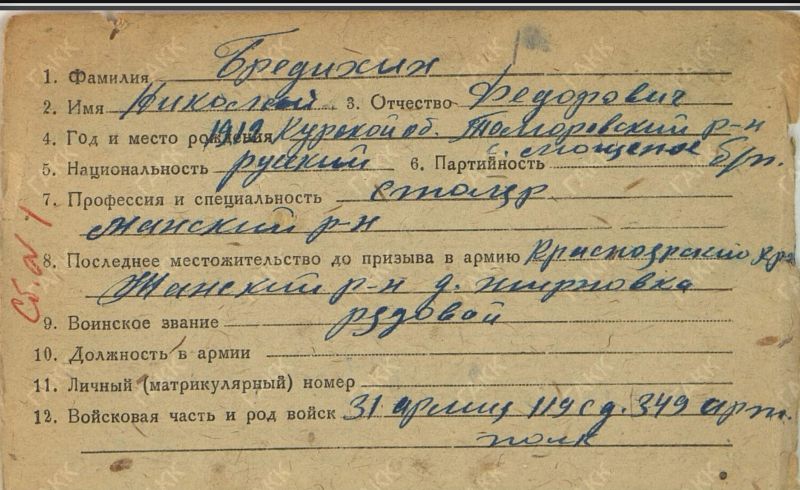 1. Фамилия Бредихин
2. Имя Николай 3. Отчество Федорович
4. Год и место рождения 1912 Курской об. Томоровский р-н
с. Мощеное
5. Национальность русский 6. Партийность б/п.
7. Профессия и специальность столяр
Манский р-н
8. Последнее местожительство до призыва в армию Красноярский
Манский р-н д.
9. Воинское звание рядовой
10. Должность в армии
11. Личный (матрикулярный) номер
12. Войсковая часть и род войск 31 армия 119 с д. 349 арт.
полк
Сб. № 1